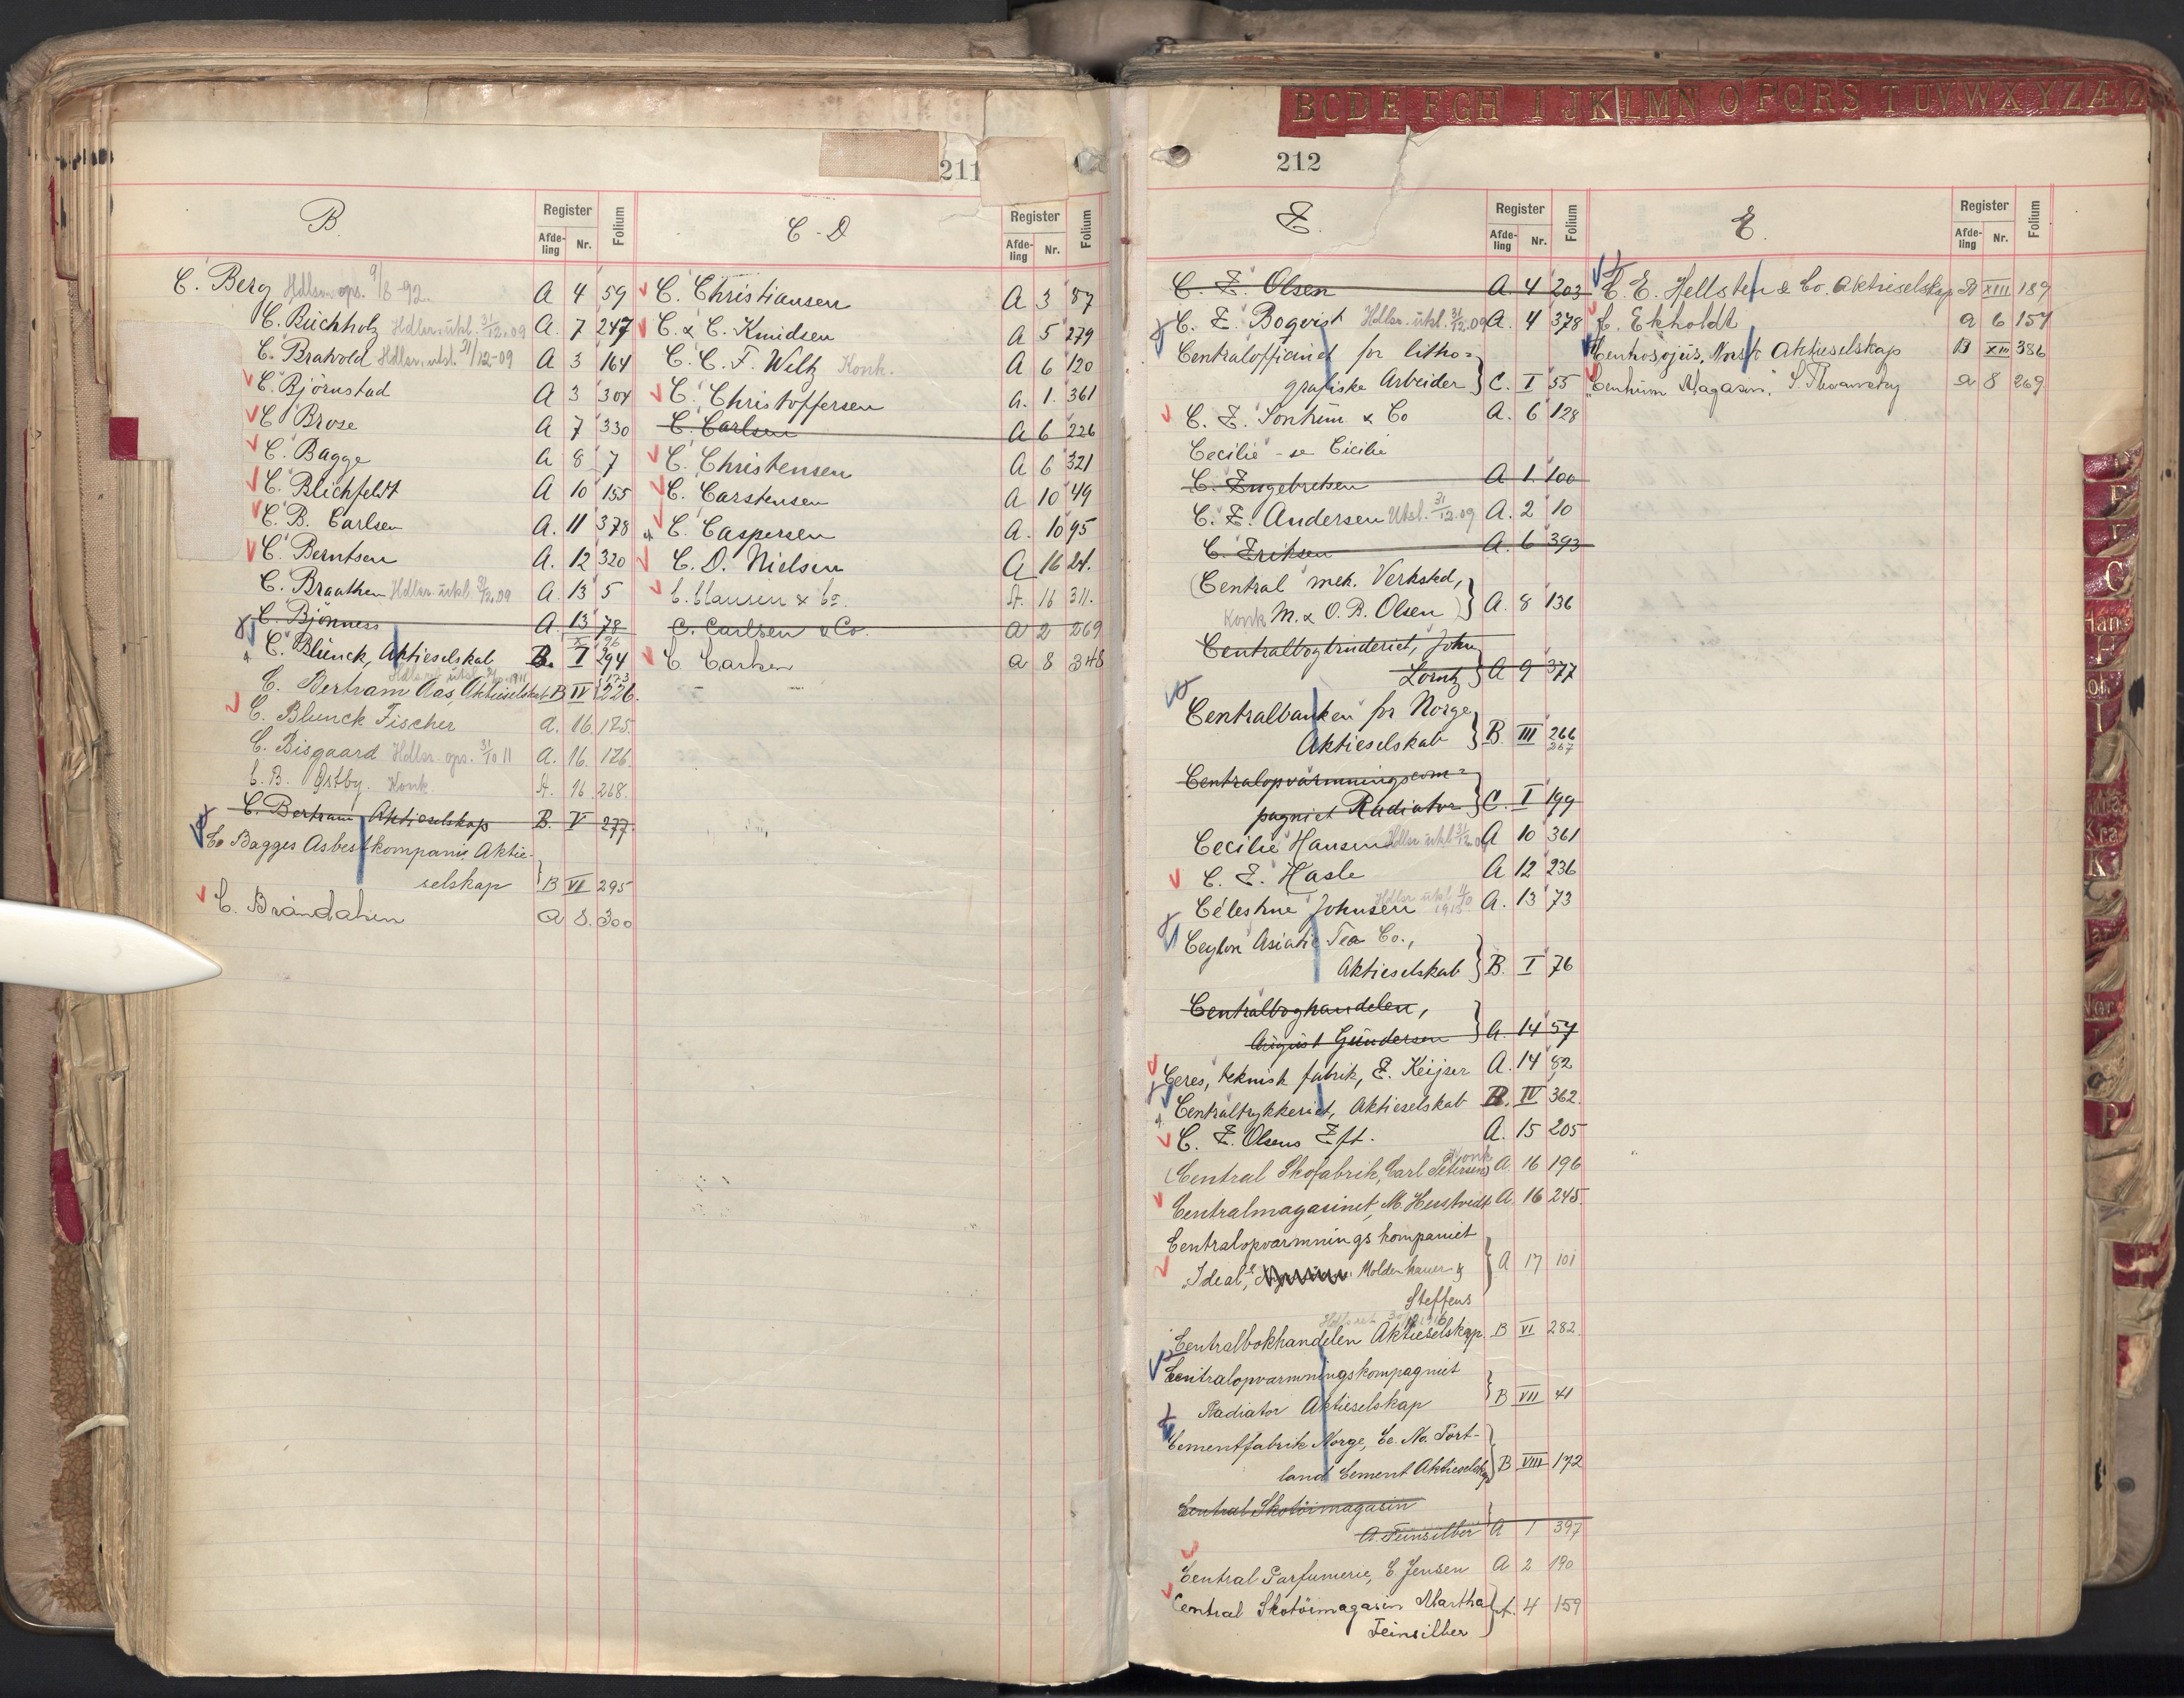 BCDE FGH IJKLMN OPQRS TUVWXYZÆØ
211
B.
Register
Afde-
ling
Nr.
Folium
C. Berg Hdlsr. ops. 9/8-92. A 4 59
C. Buchholz Hdlsr. utsl. 31/12.09 A. 7 247
C. Bratvold Hdlsr. utsl. 31/12-09 A 3 164
C. Björnstad A 3 304
C. Brose A 7 330
C. Bagge A 8 7
C. Blichfeldt A 10 155
C. B. Carlsen A. 11 378
C. Berntsen A. 12 320
C. Braathen Hdlsr. utsl. 31/12.09 A. 13 5
C. Bjönness A. 13 78
C. Blunck, Aktieselskab B. I 294
C. Bertram Aas, Aktieselskab B IV 226.
C. Blunck Fischer A. 16. 125.
C. Bisgaard Hdlsr. ops. 31/10 11 A. 16. 126.
C. B. Østby. Konk. A. 16 268.
C. Bertram Aktieselskap B. V 277.
Co Bagges Asbestkompani Aktie-
selskap B VI 295
C. Brandahen A 8. 300
C-D
Register
Afde-
ling
Nr.
Folium
C. Christiansen A 3 87
C. & C. Knudsen A 5 279
C. C. F. Wiltz Konk. A 6 120
C. Christoffersen A. 1. 361
C. Carlsen A 6 226
C. Christensen A 6 321
C. Carstensen A 10 49
C. Caspersen A. 10 95
C. D. Nielsen A 16 24.
C. Clausen & Co. A. 16 311.
C. Carlsen & Co. A 2 269
C. Carlsen A 8 348
212
E.
Register
Afde-
ling
Nr.
Folium
C. E. Olsen A. 4 203
C. E. Boqvist Hdlsr. utsl. 31/12.09 A. 4 378
Centralofficinet for litho-
grafiske Arbeider C. I 55
C. E. Sontum & Co A. 6 128
Cecilie - se Cicilie
C. Engebretsen A 1. 100
C. E. Andersen Utsl. 31/12.09 A. 2 10
C. Eriksen A. 6 393
(Central mek. Verksted,
Konk M. & O. R. Olsen) A. 8 136
Centralbogtrykkeriet, John
Lorntz A 9 377
Centralbanken for Norge,
Aktieselskab B. III 266
267
Centralopvarmningscom-
pagniet Radiator C. I 199
Cecilie Hansen Hdlsr utsl 31/12.09 A 10 361
C. E. Hasle A 12 236
Célestine Johnsen Hdlsr utsl 1913 A. 13 73
Ceylon Asiatic Tea Co.,
Aktieselskab B. I 76
Centralboghandelen,
August Gundersen A. 14 57
Ceres, teknisk fabrik, E. Keijser A. 14 82
Centraltrykkeriet, Aktieselskab B. IV 362.
C. E. Olsens Eft. A. 15 205
(Central Skofabrik, Carl Petersen) Konk A 16 196
Centralmagasinet, M. Herstvedt A. 16 245.
Centralopvarmnings kompaniet
"Ideal", Moldenhauer &
Steffens A 17 101
Centralbokhandelen Aktieselskap B VI 282.
Centralopvarmningskompagniet
Radiator Aktieselskap B VII 41
Cementfabrik Norge, Ce. No. Port-
land Cement Aktieselskap B VIII 172
Central Skotöimagasin
A. Feinsilber A 1 397
Central Parfumerie, E Jensen A 2 190
Central Skotöimagasin Martha
Feinsilber A. 4 159
E.
Register
Afde-
ling
Nr.
Folium
C. E. Hellsten & Co. Aktieselskap B XIII 189
C. Ekholdt A 6 157
Centrosojus, Norsk Aktieselskap B XIII 386
"Centrum Magasin" A 8 269